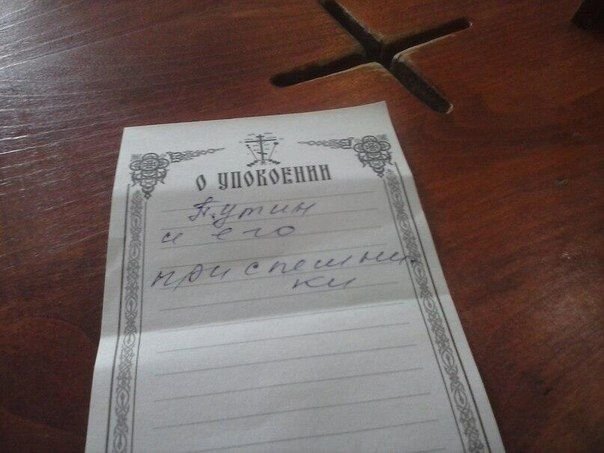 О УПОКОЕНИИ
Путин
и его
приспешни-
ки